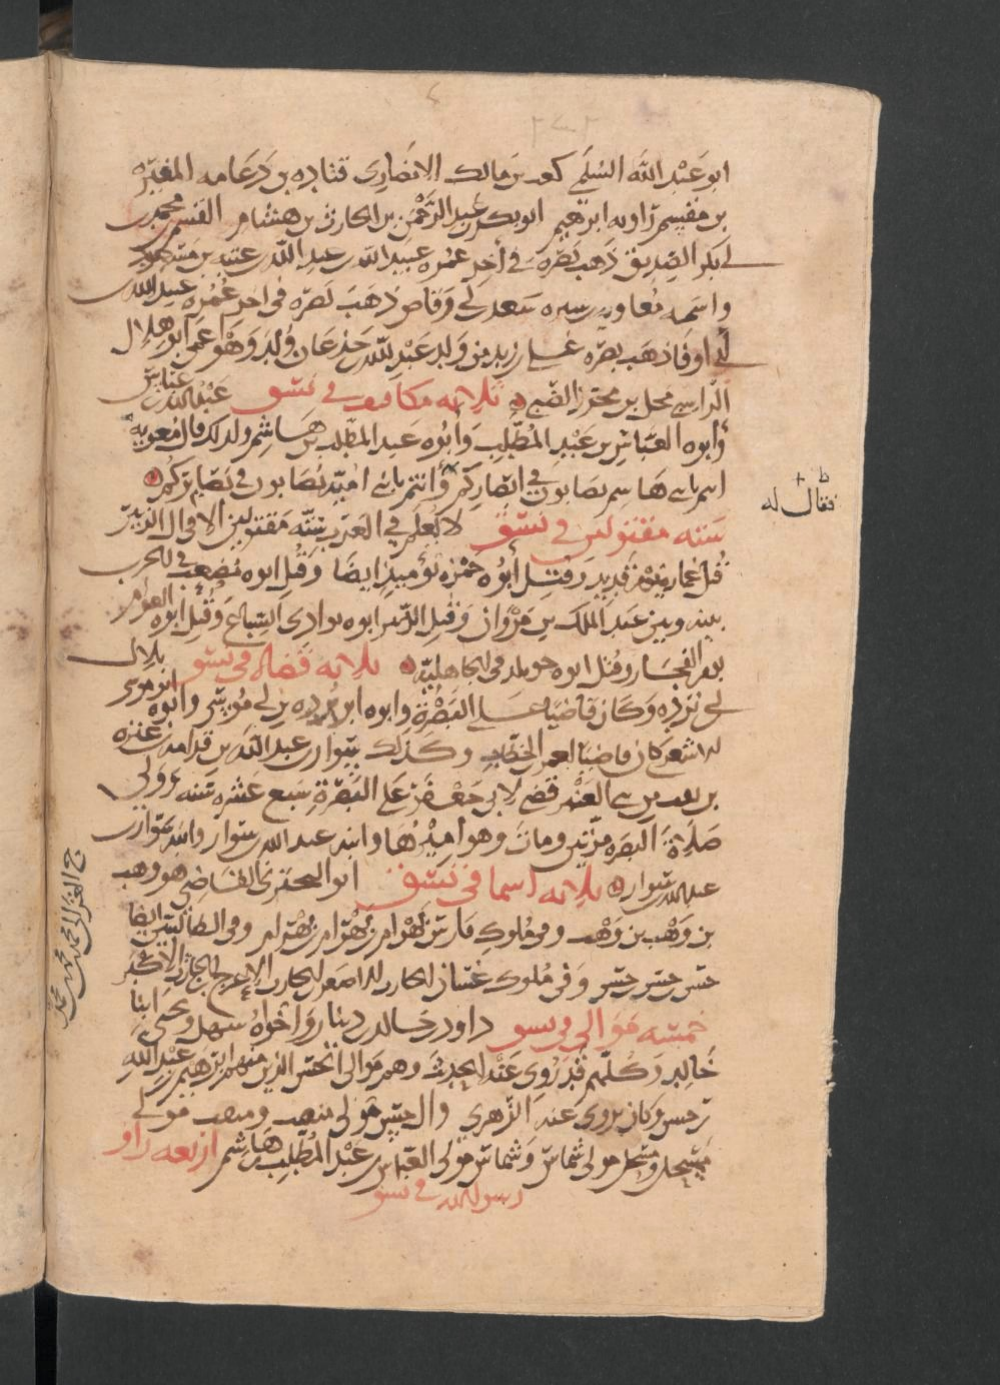 ابو عَبْد الله السُلَمي كعب بن مالك الانصَارِى قتاده بن دَعَامه المغِيره
بن مقسم راويه ابرهيم ابو بكر بن عبد الرَّحْمن بن الحارث بن هشام القسم بن محمد بن
ابي بكر الصِديق ذَهَب بَصَرُه في أخِر عُمُره عبيد الله بن عبد الله بن عتبه بن مَسعود
سعد بن ابي وَقاص ذَهَبَ بَصَره فى اخر عُمُره عبد الله بن
ابي اوفا ذهَب بصَره على بن زيد من وَلد عَبْد الله بن جذعَان وُلِدَ وَهْوَ اعمَى ابو هِلال
الراسبي محل بن محرز الضبي ثلاثه مكافيف في نَسَق عَبْد الله بن عبّاس
وابوه العَبّاس بن عَبْدِ المُطَّلِب وَأبُوه عَبد المطّلب بن هَاشِم ولذلك قال مُعويه
انتم يا بني هَاشِم تصَابون في ابصَاركم وَانتم يا بني اُميّه تُصَابون في بَصَايركُم
فقال له
ستّه مقتولين في نَسَق لا يُعلَم في العَرَب ستّه مَقتولين الا في ال الزبير
قُتل عُماره يَوْم قديد وقتِل أبوُه حَمْزه يَوْميذٍ ايضًا وَقُتِل ابوه مُصْعَب في الحرب
بينه وبين عَبْد الملك بن مَرْوان وَقُتِل الزُّبير ابوه بوادى السِّباع وَقُتِل ابوه العوّام
يوم الفجَار وقُتل ابوه خويلد فى الجاهليّة ثلاثه قضاه في نَسَق بلال بن
ابي بُرْده وَكَان قاضيًا على البَصْرة وابوه ابو بُرْده بن ابي مُوسَى وابوه ابو موسى
الاشعري كان قاضيًا لعمر بن الخطّاب وكَذلك سَوّار بن عبد الله بن قدامه بن عنزه
العَنْبري قضى لابي جَعْفَر عَلى البَصْرةِ سَبع عَشْره سَنه وَوَلي
صَلاةَ البَصْره مرّتين وماتَ وهو أميرُهَا وابنه عبد الله بن سوار وابنه سَوّار بن
عبد الله بن سَوار ثلاثه اسما في نَسَق ابو البحترى القاضِي هو وهب
بن وَهْب بن وَهْب وفي مُلوك فارسَ بَهْرام بن بَهْرام بن بَهْرام وفى الطالبيين ايضًا
حسَن بن حسَن بن حسَن وَفي مُلوك غسّان الحارث الاصغر بن الحارث الاعرج بن الحارث الاكبَر
خمسَه مَوَالى في نسق داود بن خالد بن دينار وَاخواهُ سُهيل ويحيَى ابنا
خَالِد وَكُلّهم قَد رُوِيَ عَنْه الحديث وهم مَوالى ال حنين الذين منهم ابرهيم بن عَبْد الله
بن حنين وكان يروي عَنه الزهري وال حنين مَوالى مثقب ومثقب مَولى
مِسحل ومسحل مولى شماس وَشَماس مَولى العَبّاس بن عَبْد المُطَّلب بن هَاشِم اربعه راو
رسول الله في نسق
محمد بن محمد بن محمد الغزالى